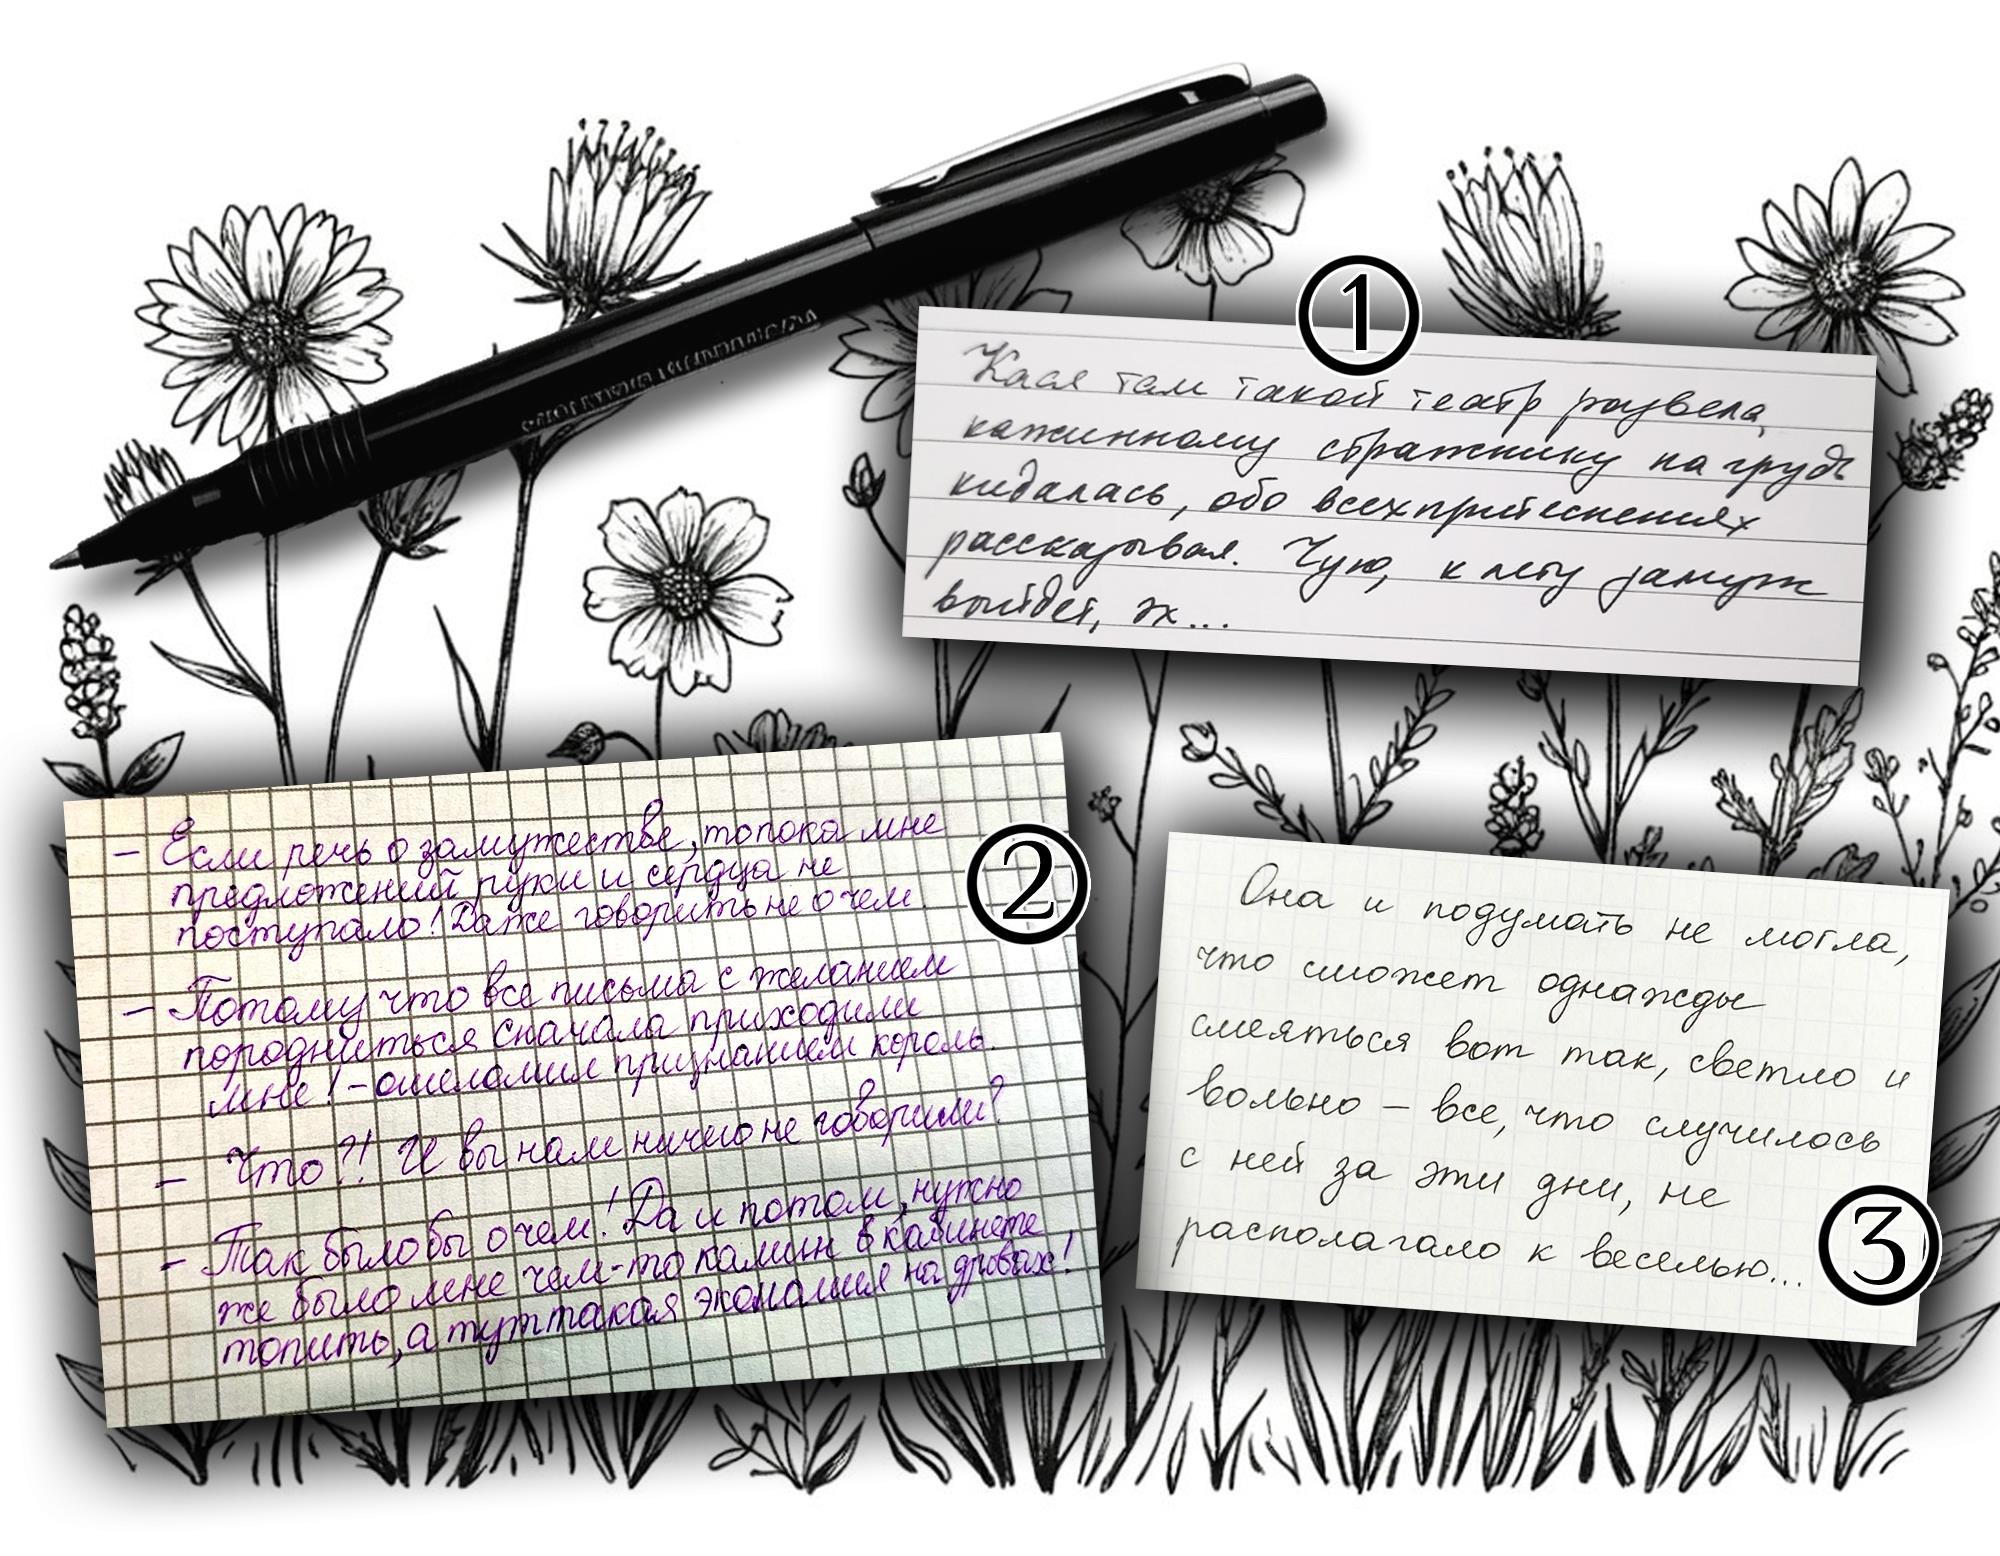 1
Кася там такой театр развела,
кажинному стражнику на грудь
кидалась, обо всех притеснениях
рассказывая. Чую, к лету замуж
выйдет, эх...
2
– Если речь о замужестве, то пока мне
предложений руки и сердца не
поступало! Даже говорить не о чем.
– Потому что все письма с желанием
породниться сначала приходили
мне! – ошеломил признанием король.
– Что?! И вы нам ничего не говорили?
– Так было бы о чем! Да и потом, нужно
же было мне чем-то камин в кабинете
топить, а тут такая экономия на дровах!
3
Она и подумать не могла,
что сможет однажды
смеяться вот так, светло и
вольно – все, что случилось
с ней за эти дни, не
располагало к веселью...